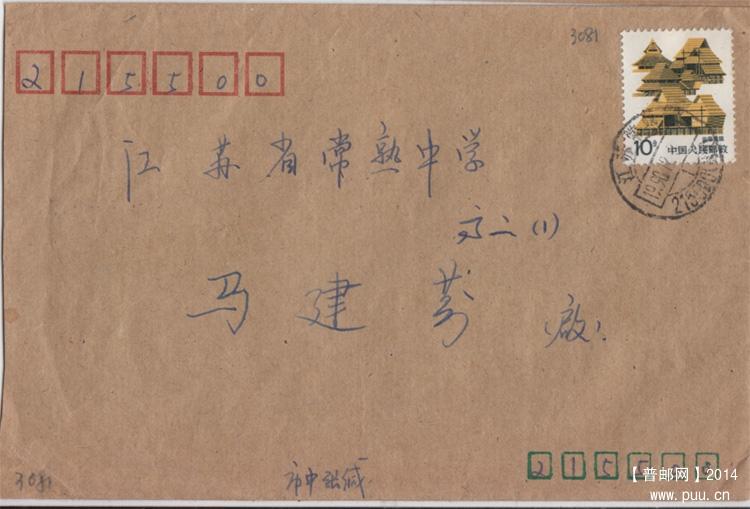 3081
215500
10分 中国人民邮政
江苏省常熟中学
高二(1)
马建芳 啟
3081
市中张缄
2155
【普邮网】2014
www.puu.cn